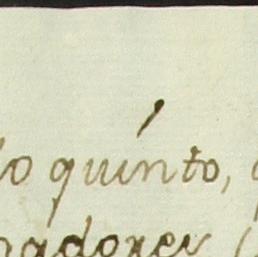 io quinto,
nadores